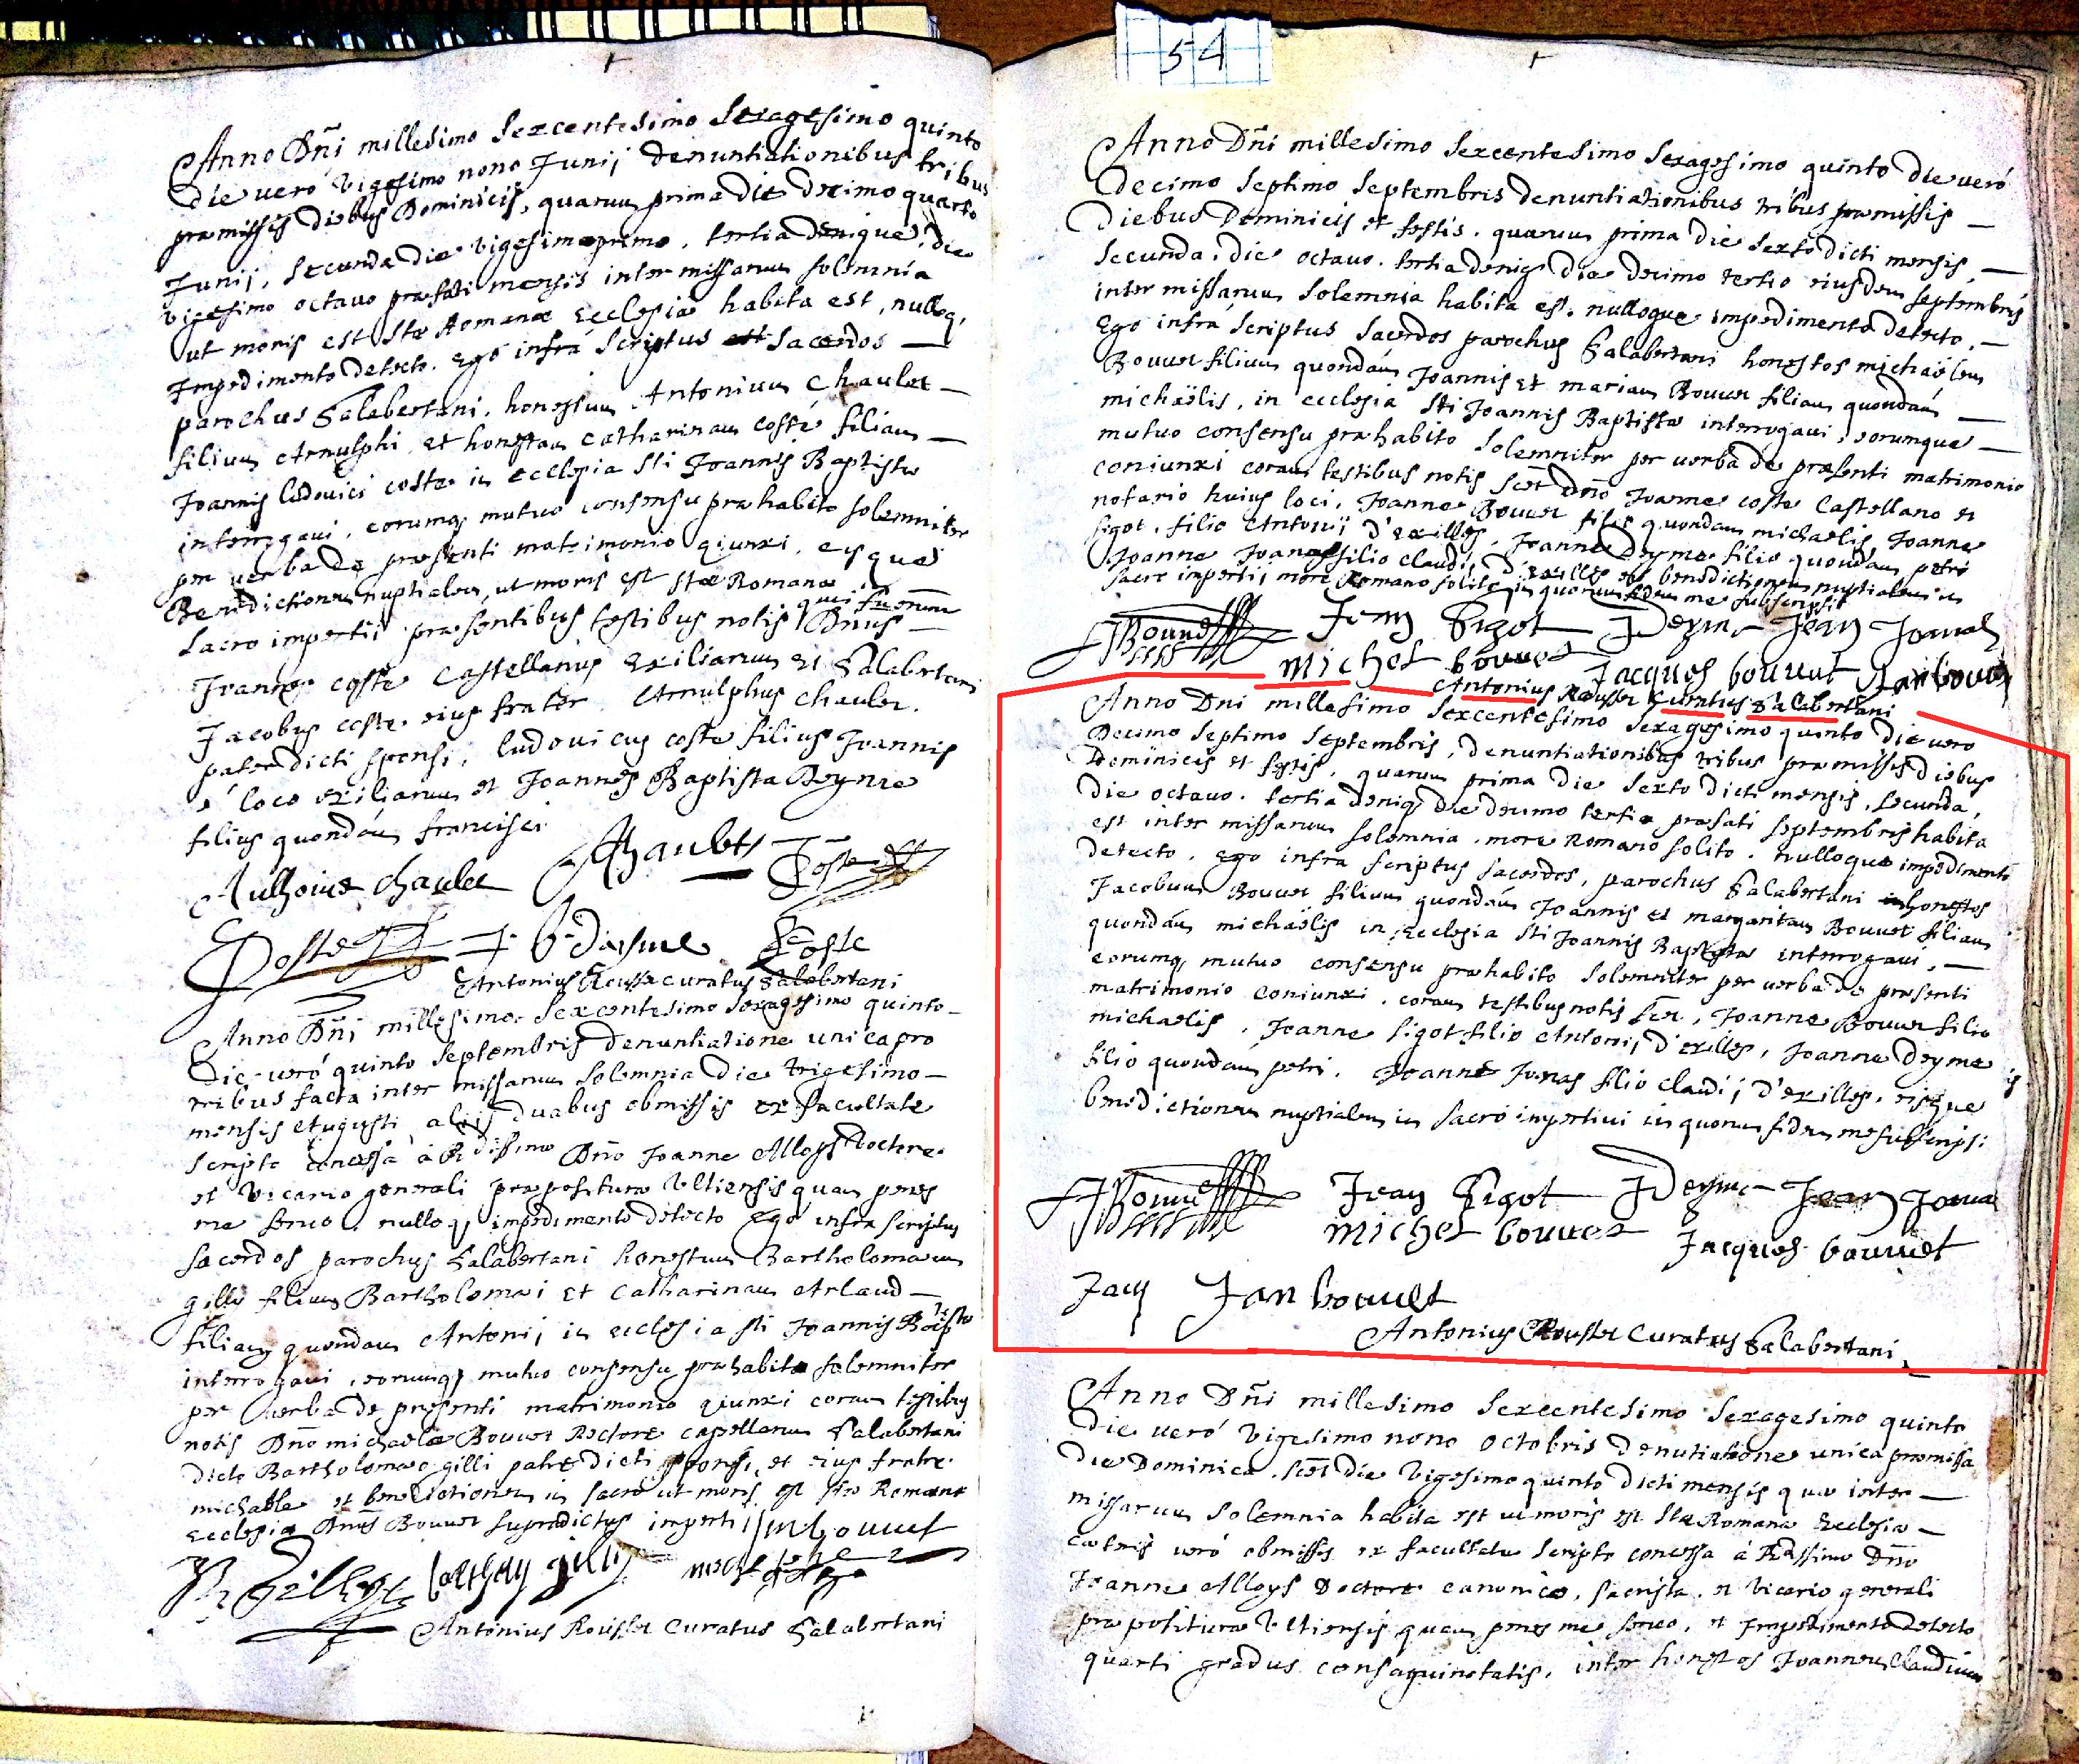 Anno Dñi millesimo sexcentesimo sexagesimo quinto
die veró vigesimo nono Junij denuntiationibus tribus
præmissis diebus Dominicis, quarum prima die decimo quarto
Junij, secunda die vigesimoprimo, tertia denique die
vigesimo octavo præfati mensis inter missarum solemnia
ut moris est stæ Romanæ Ecclesiæ habita est, nulloq,
Impedimento detecto. ego infrá scriptus sacerdos
parochus Salabertani, honestum Antonium Chaulet
filium Arnulphi, et honestam Catharinam coste filiam
Joannis ludovici coste in ecclesia sti Joannis Baptistæ
interrogavi, eorumq, mutuo consensu præhabito solemniter
per verba de præsenti matrimonio qiunxi, eisque
Benedictionem nuptialem, ut moris est stæ Romanæ in
sacro impertij præsentibus testibus notis qui fuerunt Dnus
Joannes coste Castellanus Exiliarum et Salabertani
Jacobus coste eius frater. Arnulphus Chaulet.
pater dicti sponsi, ludovicus coste filius Joannis
é loco exiliarum et Joannes Baptista Deyme
filius quondám francisci
Anthoine chaulet AChaulet JCoste
Coste J. b. deyme LCoste
Antonius Rousset curatus Salabertani
Anno Dñi millesimo sexcentesimo sexagesimo quinto
Die veró quinto septembris denuntiatione unica pro
tribus facta inter missarum solemnia die trigesimo
mensis Augusti, alijs duabus obmissis ex facultate
scripto concessa á Rdissimo Dño Joanne Alloys Doctore
et vicario generali præposituræ Ultiensis quam penes
me servo, nulloq, impedimento detecto Ego infra scriptus
sacerdos parochus Salabertani honestum Bartholomæum
gilly filium Bartholomæi et Catharinam Arlaud
filiam quondam Antonij in ecclesia sti Joannis Baptistæ
interrogavi, eorumq, mutuo consensu præhabito solemniter
per verba de presenti matrimonio qiunxi coram testibus
notis Dño michaele Bouvet Rectore capellarum Salabertani
dicto Bartholomæo gilli patre dicti sponsi, et eius fratre
michaele et benedictionem in sacro ut moris est stæ Romanæ
Ecclesiæ Dnus Bouvet supradictus impertij
Antonius Rousset Curatus Salabertani
54
Anno Dñi millesimo sexcentesimo sexagesimo quinto Die veró
Decimo septimo septembris denuntiationibus tribus præmissis
Diebus Dominicis et festis. quarum prima die sexto dicti mensis,
secunda, die octavo. tertia deniq, die decimo tertio eiusdem septembris
inter missarum solemnia habita est. nulloque impedimento detecto.
Ego infrá scriptus sacerdos parochus Salabertani honestos michaëlem
Bouvet filium quondám Joannis et mariam Bouvet filiam quondám
michaëlis, in ecclesia sti Joannis Baptistæ interrogavi, eorumque
mutuo consensu præhabito solemniter per verba de præsenti matrimonio
coniunxi coram testibus notis scet Dño Joanne coste Castellano et
notario huius loci, Joanne Bouvet filio quondam michaelis Joanne
sigot, filio Antonij d'exilles, Joanne Deyme filio quondám petri
Joanne Jouas filio claudij d'exilles et benedictionem nuptialem in
sacro impertij more Romano solito in quorum fidem me subscripsi
JBouvet Jean Sigot JDeyme Jean Jouas
Michel bouvet Jacques bouvet Jan bouvet
Antonius Rousset Curatus Salabertani
Anno Dni millesimo sexcentesimo sexagesimo quinto die vero
Decimo septimo septembris, denuntiationibus tribus præmissis diebus
Dominicis et festis, quarum prima die sexto dicti mensis, secunda,
die octavo. tertia deniq, die decimo tertio præfati septembris habita
est inter missarum solemnia, more Romano solito. nulloque impedimento
detecto. ego infra scriptus sacerdos, parochus Salabertani honestos
Jacobum Bouvet filium quondám Joannis et margaritam Bouvet filiam
quondám michaëlis in Ecclesia sti Joannis Baptistæ interrogavi,
eorumq, mutuo consensu præhabito solemniter per verba de præsenti
matrimonio coniunxi, coram testibus notis scet, Joanne Bouvet filio
michaelis, Joanne sigot filio Antonij d'exilles, Joanne Deyme
filio quondám petri. Joanne Jouas filio claudij d'exilles, eisque
benedictionem nuptialem in sacro impertivi in quorum fidem me subscripsi:
JBouvet Jean Sigot JDeyme Jean Joua
Michel bouvet Jacques bouvet
Jan Jan bouvet
Antonius Rousset Curatus Salabertani
Anno Dñi millesimo sexcentesimo sexagesimo quinto
die veró vigesimo nono octobris denutiatione unica præmissa
die Dominica, scet die vigesimo quinto dicti mensis quæ inter
missarum solemnia habita est ut moris est stæ Romanæ Ecclesiæ
cæteris veró obmissis ex facultate scripto concessa á Rdissimo Dño
Joanne Alloys Doctore canonico, sacrista, et vicario generali
præposituræ Ultiensis quam penes me servo, et Impedimento detecto
quarti gradus consaguinetatis, inter honestos Joannem Claudium